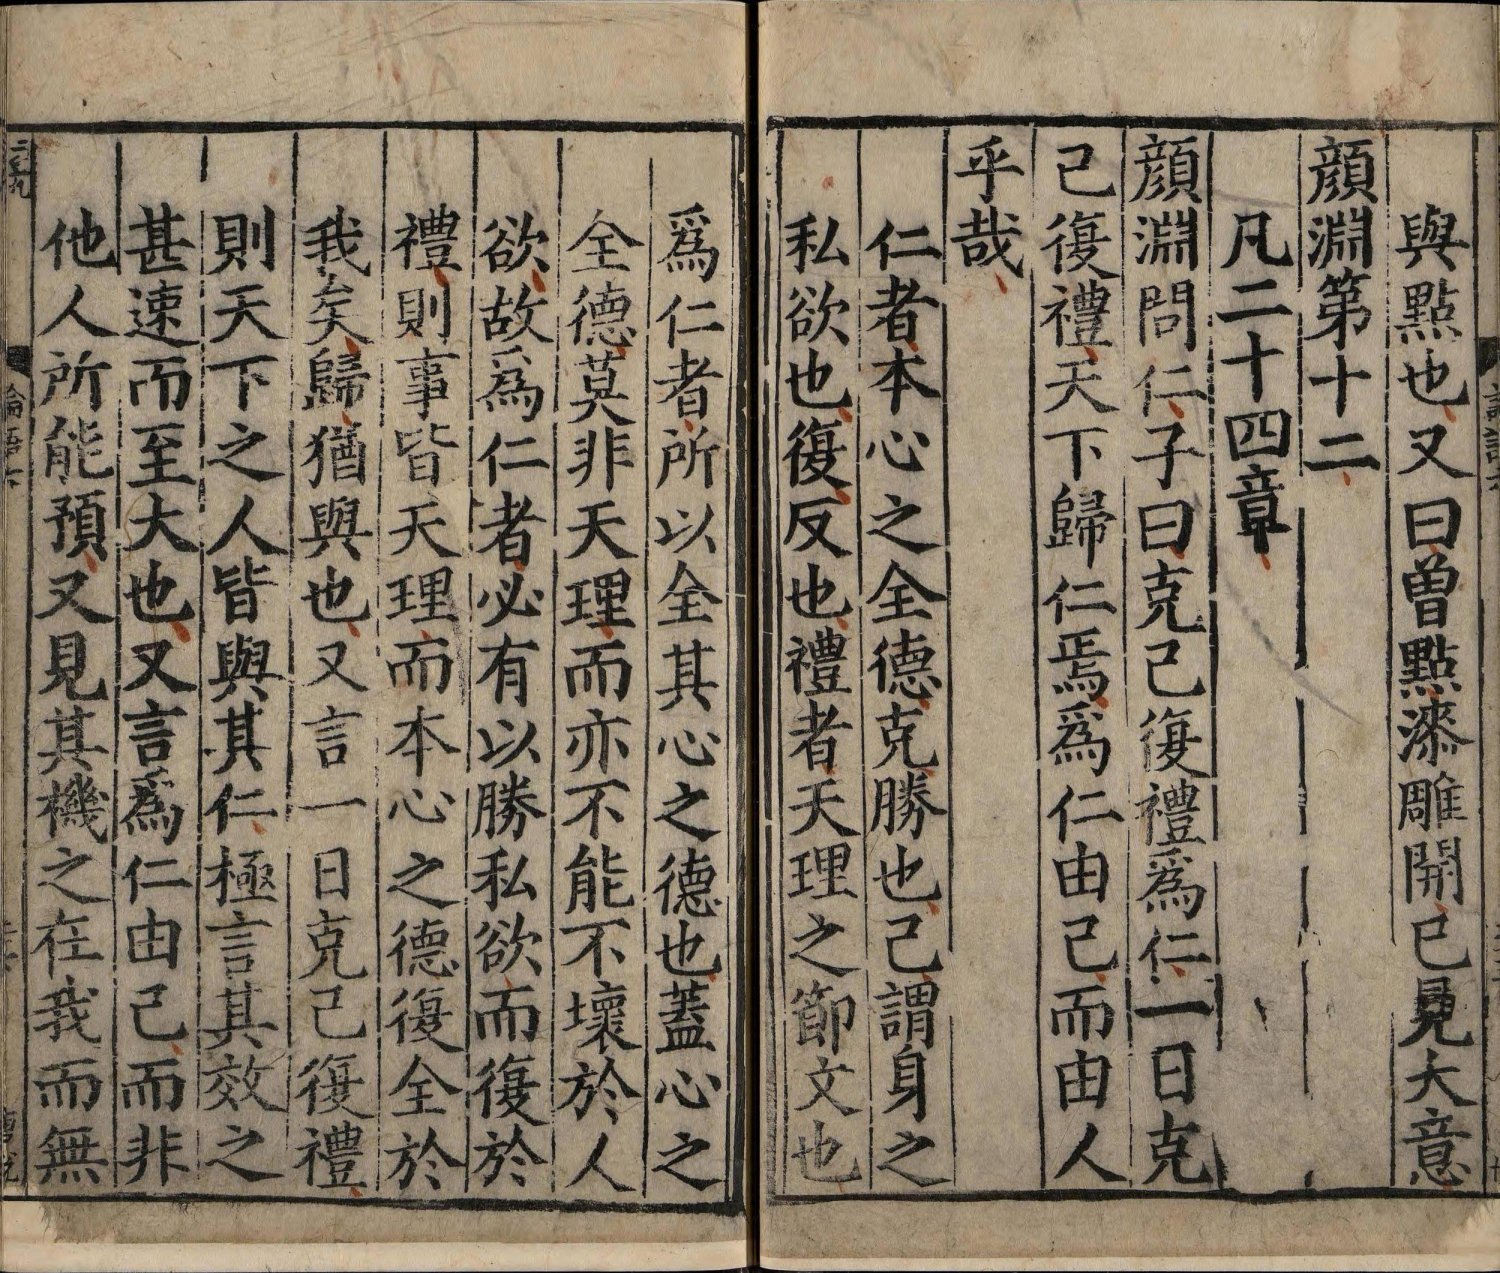 與點也又曰曽點漆雕開已見大意
顔淵第十二
凡二十四章
顔淵問仁子曰克己復禮爲仁一日克
己復禮天下歸仁焉爲仁由己而由人
乎哉
仁者本心之全德克勝也己謂身之
私欲也復反也禮者天理之節文也
爲仁者所以全其心之德也蓋心之
全德莫非天理而亦不能不壞於人
欲故爲仁者必有以勝私欲而復於
禮則事皆天理而本心之德復全於
我矣歸猶與也又言一日克己復禮
則天下之人皆與其仁極言其效之
甚速而至大也又言爲仁由己而非
他人所能預又見其機之在我而無